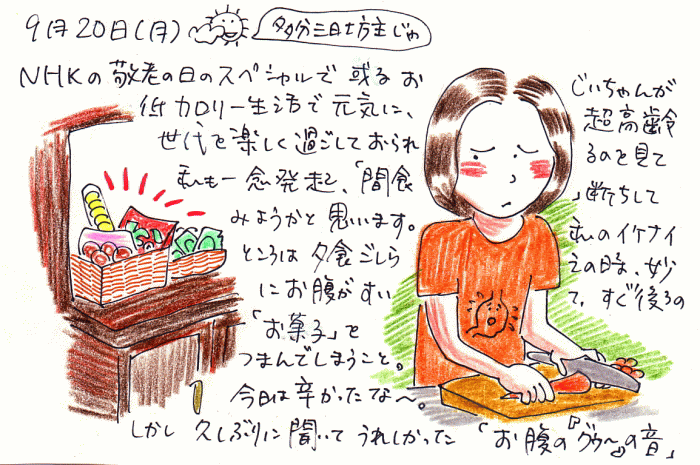 9月20日(月)
多分三日坊主じゃ
NHKの敬老の日のスペシャルで 或るお じいちゃんが
低カロリー生活で 元気に、 超高齢
世代を 楽しく過ごしておられ るのを見て
私も一念発起、「間食 」断ちして
みようかと思います。 私のイケナイ
ところは 夕食ごしら えの時、妙
にお腹がすい て、すぐ後ろの
「お菓子」を
つまんでしまうこと。
今日は辛かったな〜。
しかし 久しぶりに聞いて うれしかった 「お腹の『グゥ〜』の音」